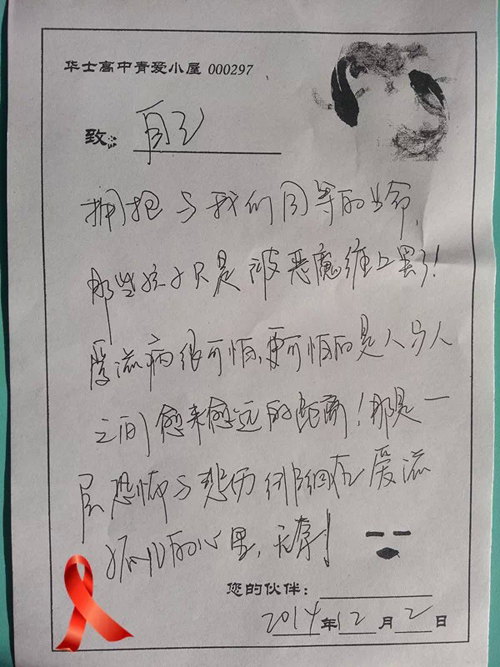 华士高中青爱小屋 000297
致: 自己
拥抱与我们同等的生命,
那些孩子只是被恶魔缠上罢了!
爱滋病很可怕,更可怕的是人与人
之间愈来愈远的距离!那是一
层恐怖与悲伤 在爱滋
孤儿的心里,无
您的伙伴:
2014年12月2日